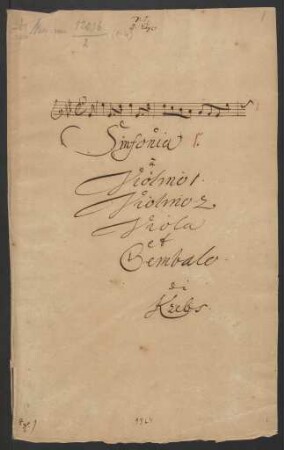 Sinfonia 1.
à
Violino 1.
Violino 2.
Viola
et
Cembalo
di
Krebs.